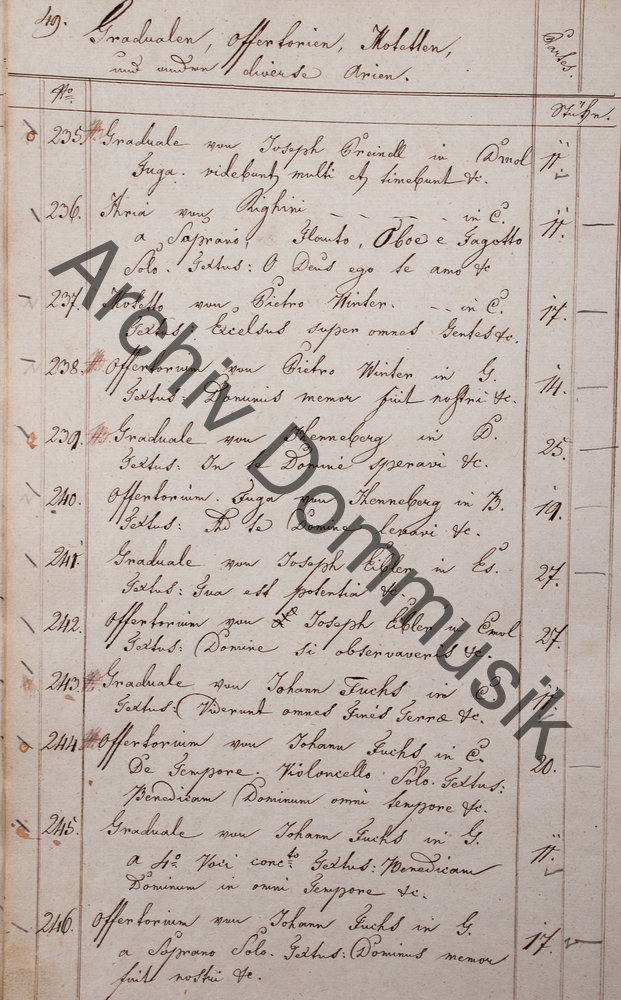 49.
Gradualen, Offertorien, Motetten,
und andere diverse Arien.
Partes.
No.
Stükn.
235. Graduale von Joseph Preindl in Dmol 11.
Fuga. videbunt multi et timebunt &c.
236. Aria von Righini - - - - in C. 11.
a Soprano, Flauto, Oboe e Fagotto
Solo. Textus: O Deus ego te amo &c
237. Motetto von Pietro Winter. - - in C. 17.
Textus: Excelsus super omnes Gentes &c.
238. Offertorium von Pietro Winter in G. 14.
Textus: Dominus memor fuit nostri &c.
239. Graduale von Henneberg in D. 25.
Textus: In te Domine speravi &c.
240. Offertorium. Fuga von Henneberg in B. 19.
Textus: Ad te Domine levavi &c.
241. Graduale von Joseph Eibler in Es. 27.
Textus: Tua est potentia &c.
242. Offertorium von Joseph Eibler in Cmol 27.
Textus: Domine si observaveris &c.
243. Graduale von Johann Fuchs in C 11.
Textus: Viderunt omnes Fines Terræ &c.
244. Offertorium von Johann Fuchs in C. 20.
De Tempore. Violoncello Solo. Textus:
Benedicam Dominum omni tempore &c.
245. Graduale von Johann Fuchs in G. 11.
a 4o Voci conc:to Textus: Benedicam
Dominum in omni Tempore &c.
246. Offertorium von Johann Fuchs in G. 17.
a Soprano Solo. Textus: Dominus memor
fuit nostri &c.
Archiv Dommusik